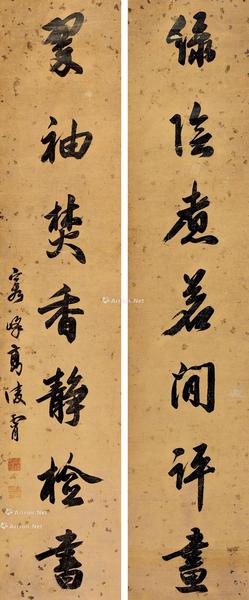 绿阴煮茗闲评画
翠袖焚香静检书
高凌霄
Artron.Net